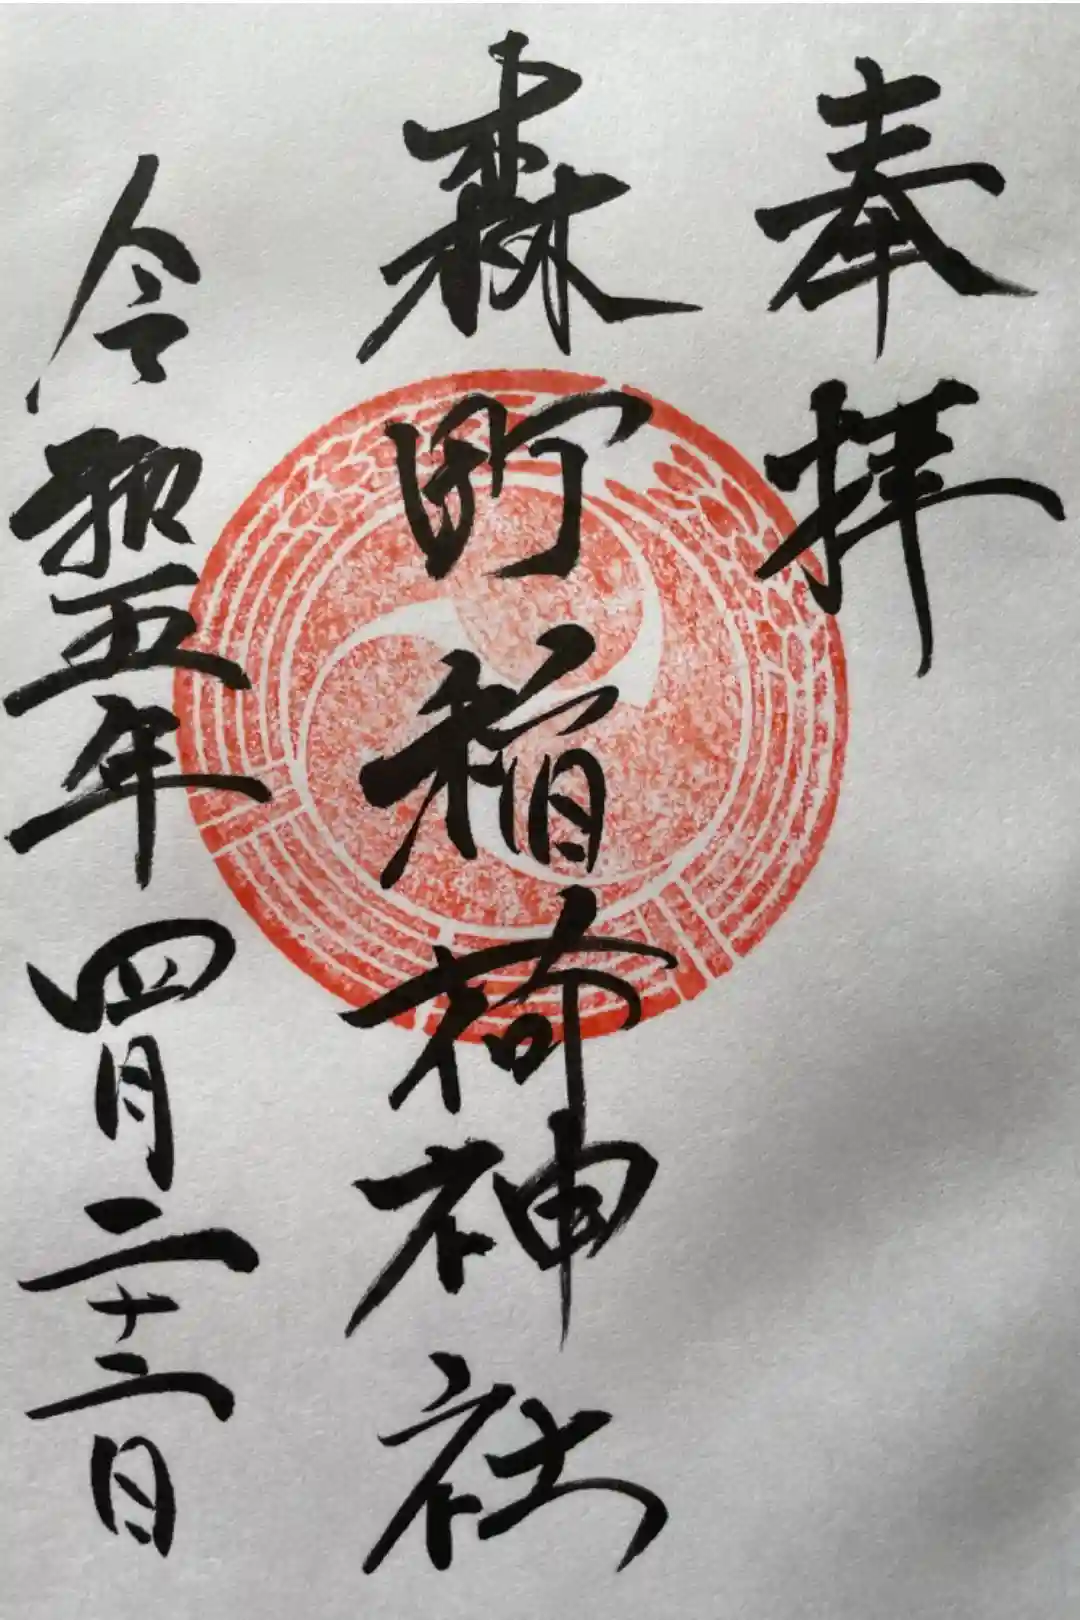 奉拝
森町稲荷神社
令和五年四月二十二日